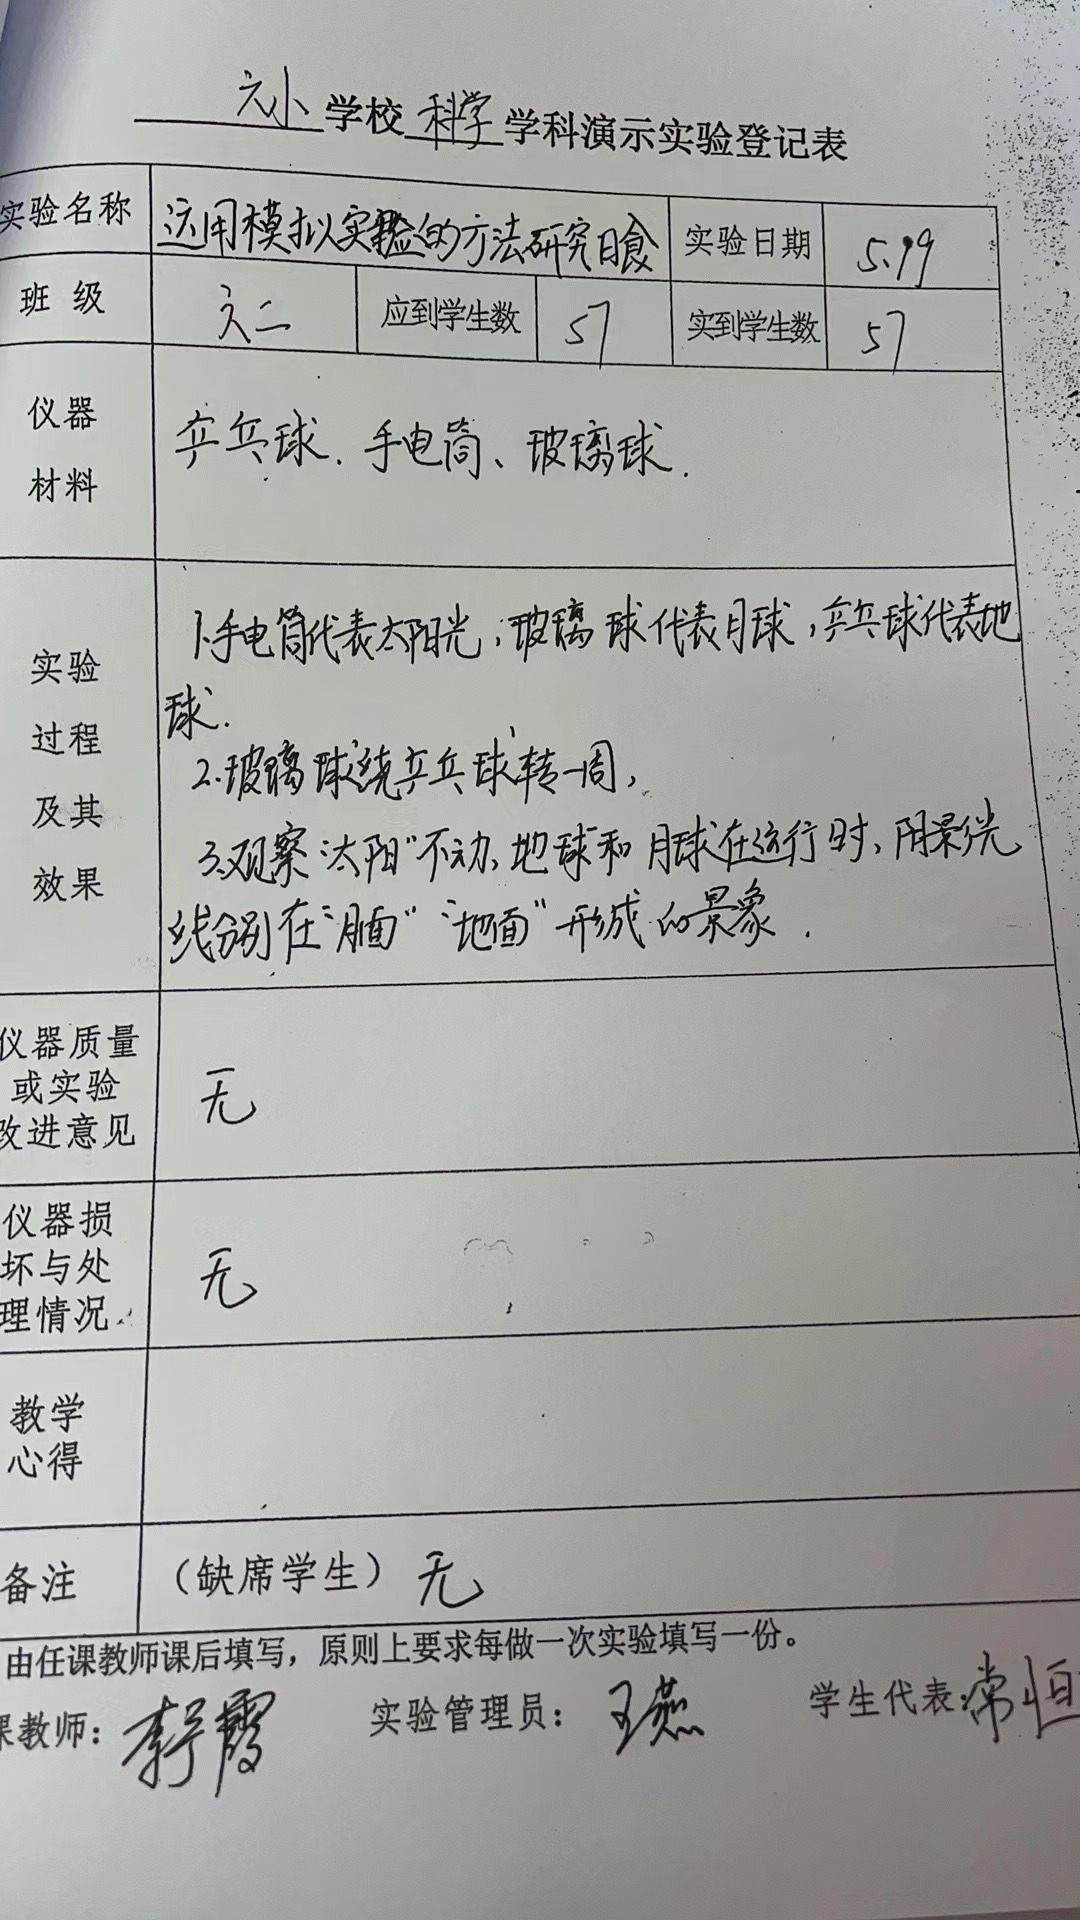 六小学校科学学科演示实验登记表
实验名称 运用模拟实验的方法研究日食 实验日期 5.19
班级 六二 应到学生数 57 实到学生数 57
仪器
材料
乒乓球.手电筒、玻璃球.
实验
过程
及其
效果
1.手电筒代表太阳光,玻璃球代表月球,乒乓球代表地
球.
2.玻璃球绕乒乓球转一周,
3.观察“太阳”不动、地球和月球在运行时,阴影光
线分别在“月面”“地面”形成的景象.
仪器质量
或实验
改进意见
无
仪器损
坏与处
理情况
无
教学
心得
备注 (缺席学生) 无
由任课教师课后填写,原则上要求每做一次实验填写一份。
课教师: 霞 实验管理员: 王燕 学生代表: 常恒